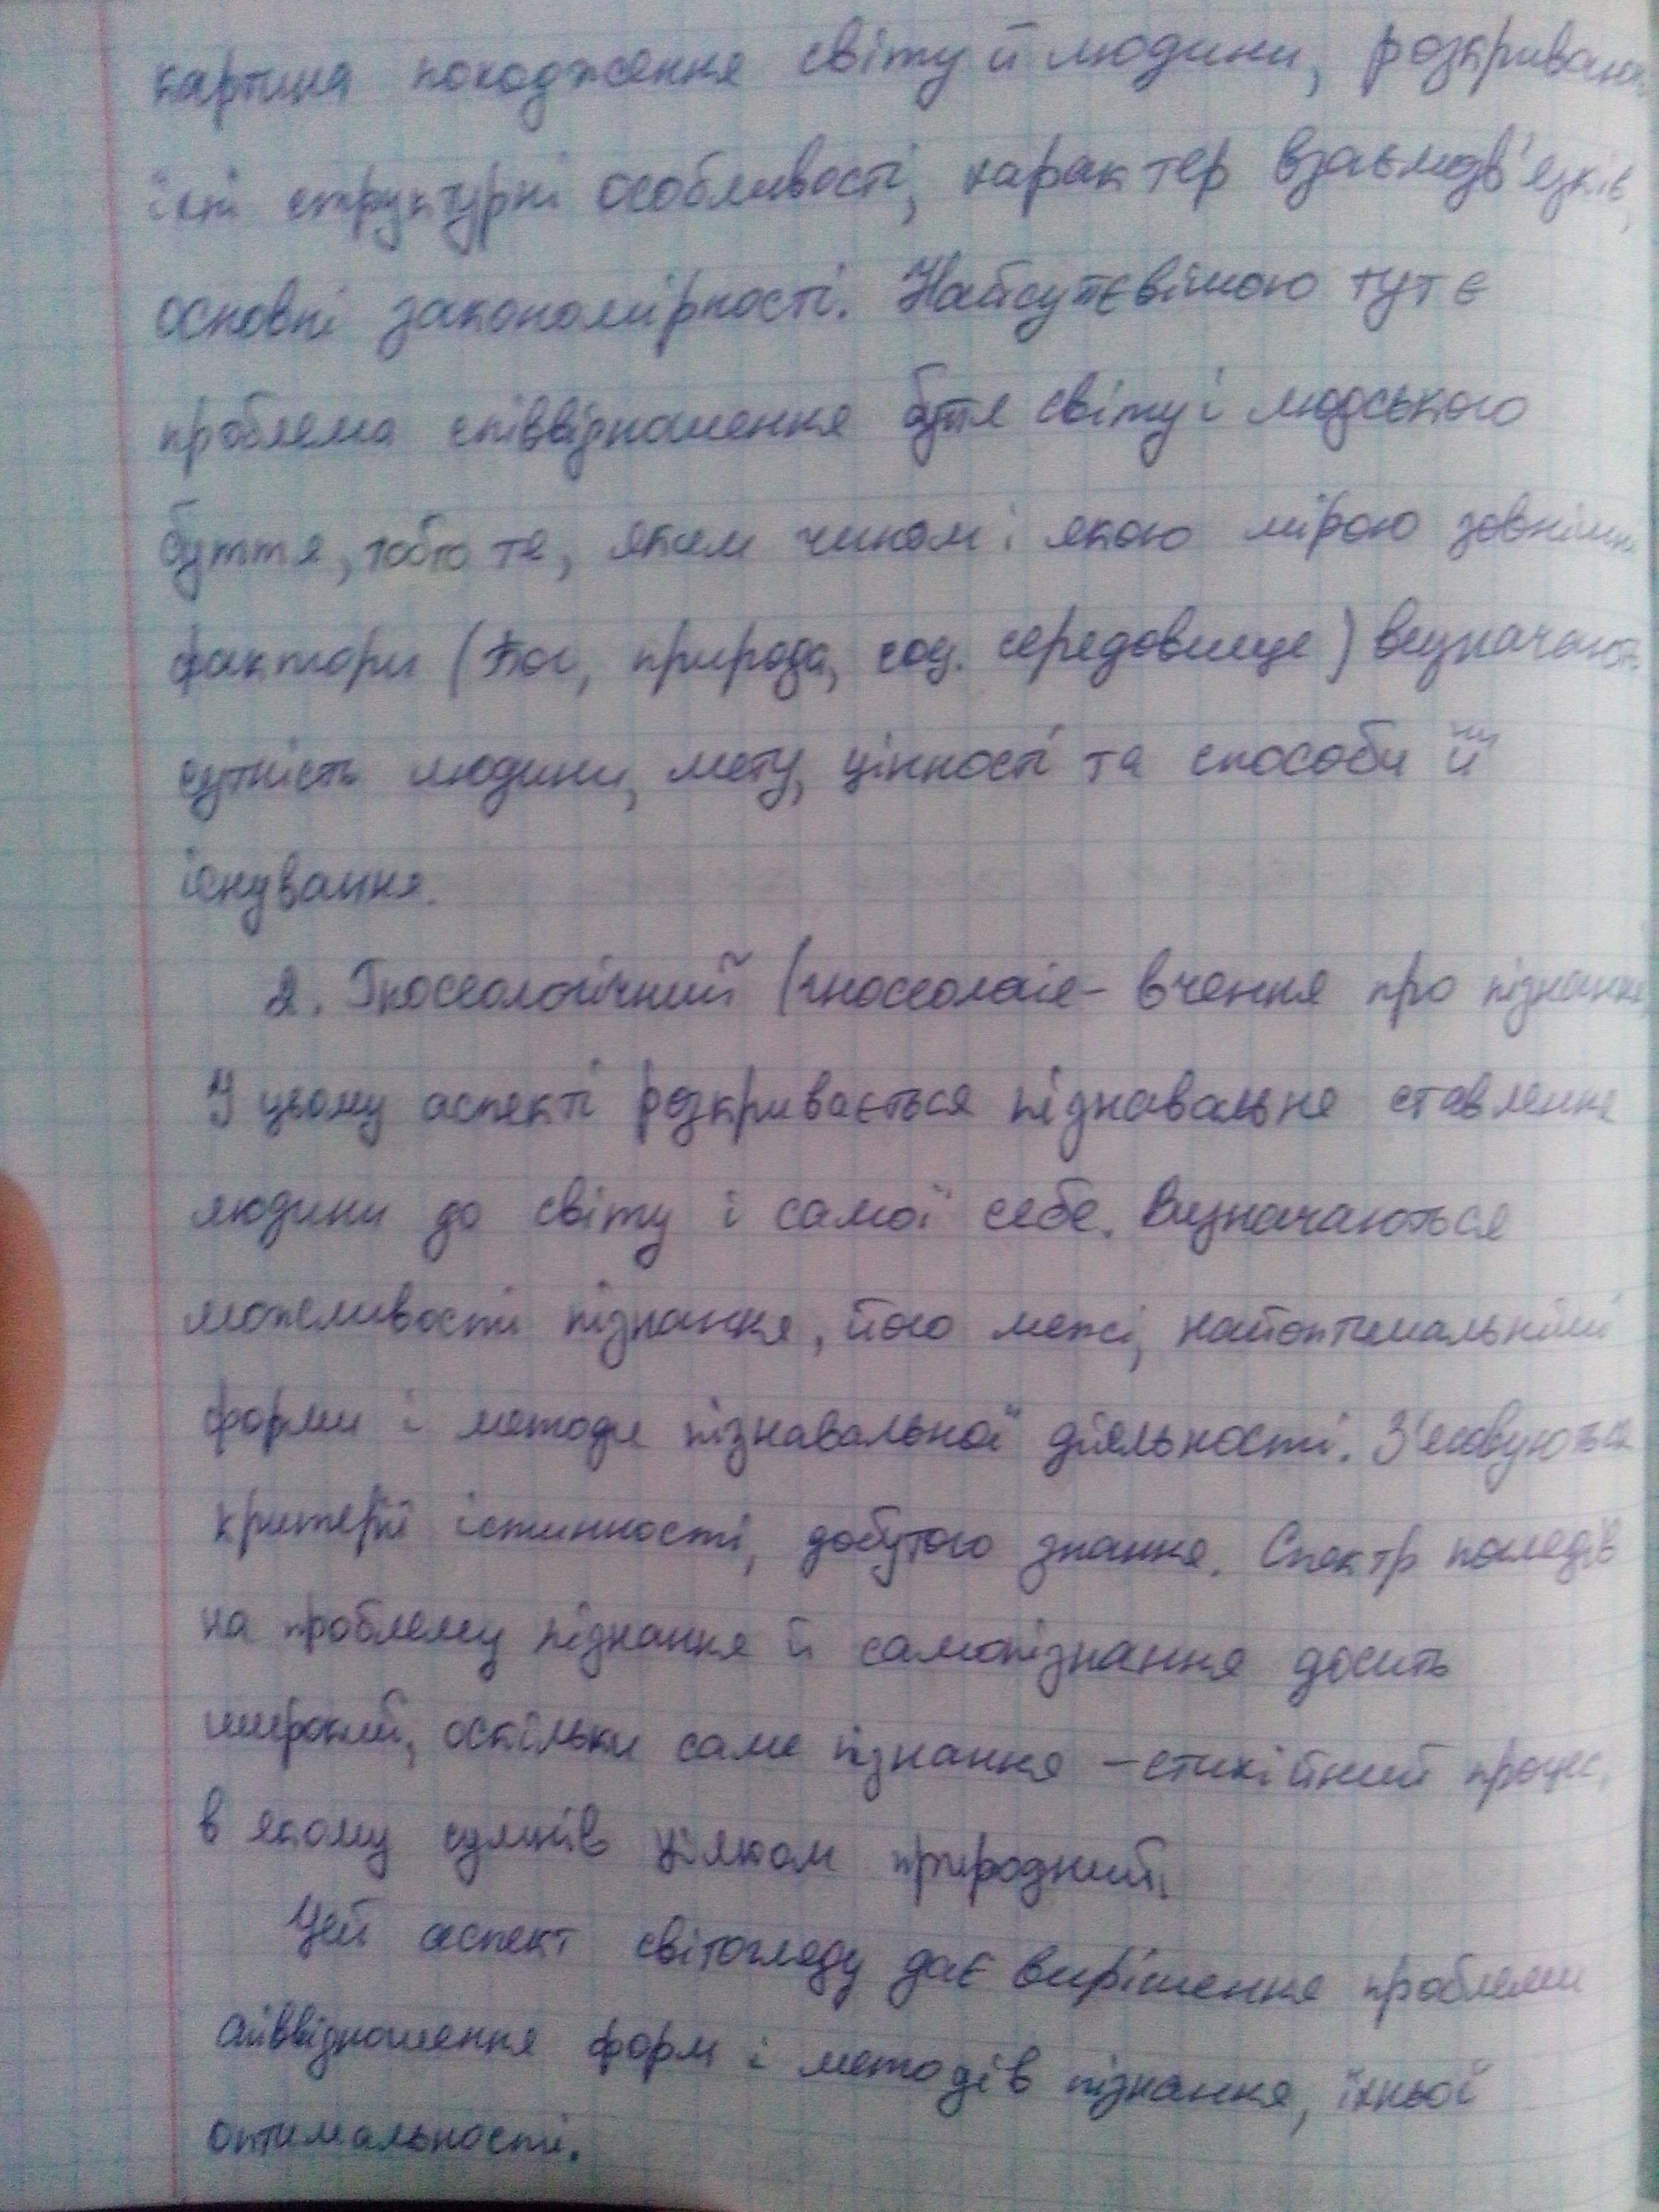 картина походження світу й людини, розкривають
їхні структурні особливості, характер взаємозв'язків,
основні закономірності. Найсуттєвішою тут є
проблема співвідношення буття світу і людського
буття, тобто те, яким чином і якою мірою зовнішні
фактори (Бог, природа, соц. середовище) визначають
сутність людини, мету, цінності та способи її
існування.
2. Гносеологічний (гносеологія - вчення про пізнання)
У цьому аспекті розкривається пізнавальне ставлення
людини до світу і самої себе. Визначаються
можливості пізнання, його межі, найоптимальніші
форми і методи пізнавальної діяльності. З'ясовуються
критерії істинності, добутого знання. Спектр поглядів
на проблему пізнання й самопізнання досить
широкий, оскільки саме пізнання – стихійний процес,
в якому сумнів цілком природний.
Цей аспект світогляду дає вирішення проблеми
співвідношення форм і методів пізнання, їхньої
оптимальності.